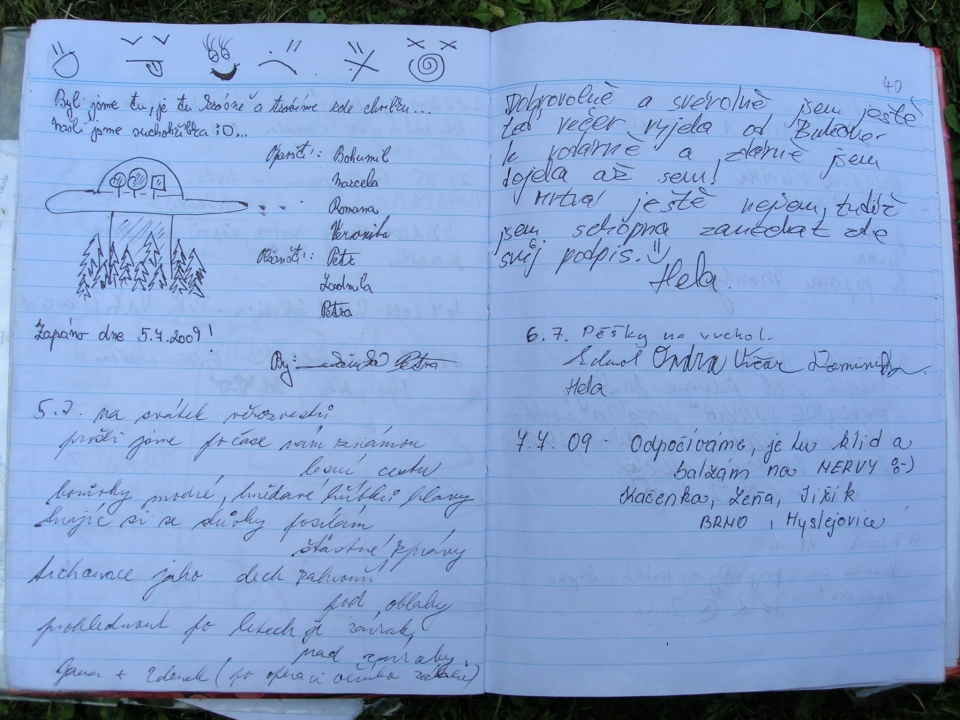 Byli jsme tu, je tu krásně a trávíme zde chvilku...
Našli jsme suchohříbka :O...
Opavští: Bohumil
Marcela
Romana
Veronika
Petr
Ludmila
Petra
Zapsáno dne 5.7.2009!
By: Petra
5.7. na svátek věrozvěstů
prošli jsme po čase nám známou
lesní cestu
borůvky modré, hnědavé hříbků hlavy
hrajíc si se slůvky posílám
šťastné zprávy
tichounce jako dech
pod oblaky
prohlédnout po letech
nad zázraky.
+ Zdeněk (po operaci očního zákalu)
40
Dobrovolně a svévolně jsem ještě
teď večer vyjela od
k vodárně a zdárně jsem
dojela až sem!
Mrtvá ještě nejsem, tudíž
jsem schopna zanechat zde
svůj podpis.
Hela.
6.7. Pěšky na vrchol.
Ondra Dominika
Hela
7.7.09 - Odpočíváme, je tu klid a
balzam na NERVY :-)
Kačenka, Zeňa, Jiřík
BRNO, Myslejovice